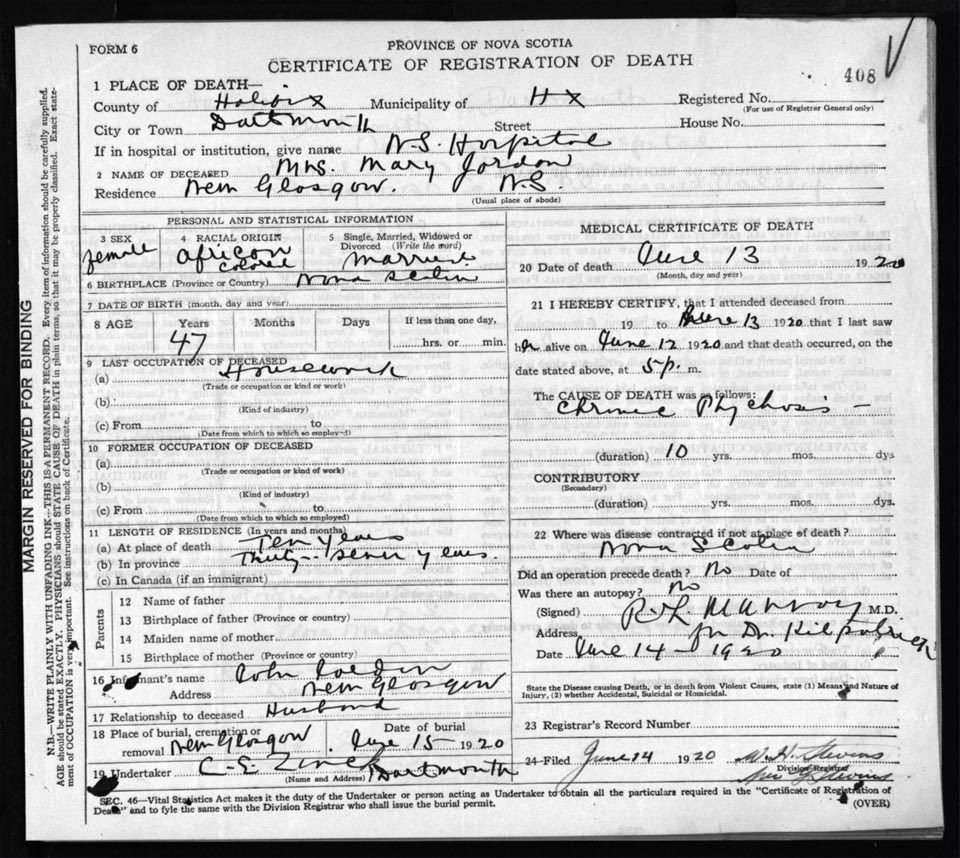 FORM 6
PROVINCE OF NOVA SCOTIA
CERTIFICATE OF REGISTRATION OF DEATH
408
1 PLACE OF DEATH—
County of Halifax Municipality of Hx Registered No.
(For use of Registrar General only)
City or Town Dartmouth Street House No.
If in hospital or institution, give name N.S. Hospital
2 NAME OF DECEASED Mrs. Mary Jordon
Residence New Glasgow. N.S.
(Usual place of abode)
PERSONAL AND STATISTICAL INFORMATION
3 SEX female
4 RACIAL ORIGIN African Colored
5 Single, Married, Widowed or Divorced (Write the word) Married
6 BIRTHPLACE (Province or Country) Nova Scotia
7 DATE OF BIRTH (month, day and year)
8 AGE Years Months Days If less than one day,
47 hrs. or min.
9 LAST OCCUPATION OF DECEASED
(a) Housework
(Trade or occupation or kind of work)
(b)
(Kind of industry)
(c) From to
(Date from which to which so employed)
10 FORMER OCCUPATION OF DECEASED
(a)
(Trade or occupation or kind of work)
(b)
(Kind of industry)
(c) From to
(Date from which to which so employed)
11 LENGTH OF RESIDENCE (In years and months)
(a) At place of death Ten years
(b) In province Thirty-seven years.
(c) In Canada (if an immigrant)
Parents
12 Name of father
13 Birthplace of father (Province or country)
14 Maiden name of mother
15 Birthplace of mother (Province or country)
16 Informant's name John
Address New Glasgow
17 Relationship to deceased Husband
18 Place of burial, cremation or removal New Glasgow. Date of burial June 15 1920
19 Undertaker C. E. Zinck Dartmouth
(Name and Address)
MEDICAL CERTIFICATE OF DEATH
20 Date of death June 13 1920
(Month, day and year)
21 I HEREBY CERTIFY, that I attended deceased from
19 to June 13 1920 that I last saw
her alive on June 12 1920 and that death occurred, on the
date stated above, at 5 p. m.
The CAUSE OF DEATH was as follows:
Chronic Phychosis —
(duration) 10 yrs. mos. dys
CONTRIBUTORY
(Secondary)
(duration) yrs. mos. dys.
22 Where was disease contracted if not at place of death?
Nova Scotia
Did an operation precede death? No Date of
Was there an autopsy? No
(Signed) R. L. Murray M.D.
Address for Dr. Kilpatrick
Date June 14 - 1920
State the Disease causing Death, or in death from Violent Causes, state (1) Means and Nature of
Injury, (2) whether Accidental, Suicidal or Homicidal.
23 Registrar's Record Number
24 Filed June 14 1920 Stevens
Division Registrar
SEC. 46—Vital Statistics Act makes it the duty of the Undertaker or person acting as Undertaker to obtain all the particulars required in the "Certificate of Registration of
Death" and to fyle the same with the Division Registrar who shall issue the burial permit.
(OVER)
MARGIN RESERVED FOR BINDING
N.B.—WRITE PLAINLY WITH UNFADING INK—THIS IS A PERMANENT RECORD. Every item of information should be carefully supplied.
AGE should be stated EXACTLY. PHYSICIANS should STATE CAUSE OF DEATH in plain terms, so that it may be properly classified. Exact state-
ment of OCCUPATION is very important. See instructions on back of Certificate.